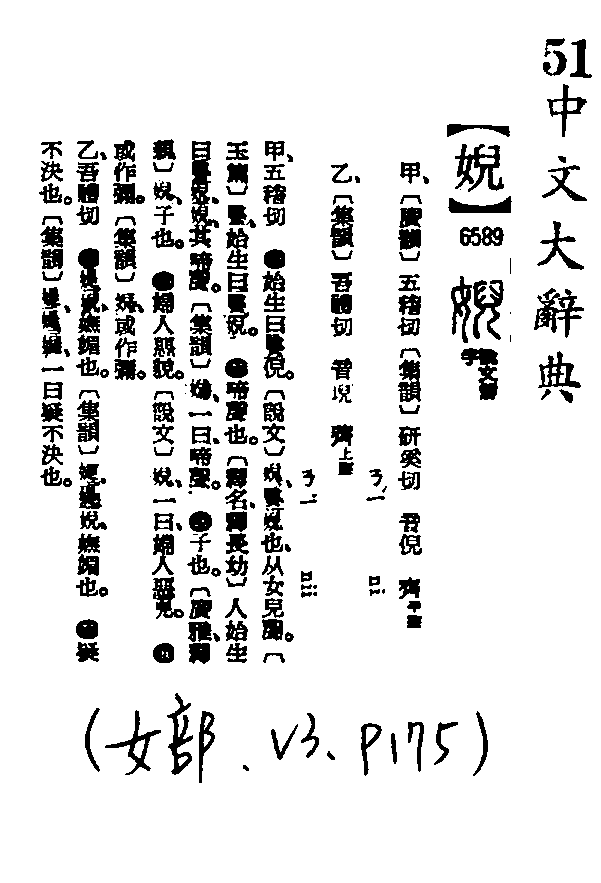 51
中文大辭典
【婗】
6589
婗
說文篆字
甲、〔廣韻〕五稽切〔集韻〕研奚切 音倪 齊平聲
ㄋㄧˊ
乙、〔集韻〕吾禮切 音堄 薺上聲
ㄋㄧˇ
甲、五稽切 ㊀始生曰嫛婗。〔說文〕婗、嫛婗也、从女兒聲。〔
玉篇〕嫛、始生曰嫛婗。㊁啼聲也。〔釋名、釋長幼〕人始生
曰嬰婗、其啼聲。〔集韻〕婗、一曰啼聲。㊂子也。〔廣雅、釋
親〕婗、子也。㊃婦人惡貌。〔說文〕婗、一曰、婦人惡皃。㊄
或作㜷。〔集韻〕婗、或作㜷。
乙、吾禮切 婗、嫵媚也。〔集韻〕婗、嫵媚也。疑
不決也。〔集韻〕一曰疑不決也。
(女部、V3、P175)